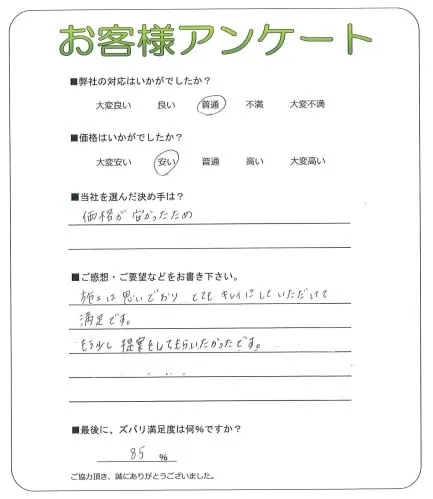 お客様アンケート
■弊社の対応はいかがでしたか？
大変良い 良い 普通 不満 大変不満
■価格はいかがでしたか？
大変安い 安い 普通 高い 大変高い
■当社を選んだ決め手は？
価格が安かったため
■ご感想・ご要望などをお書き下さい。
施工は思いどおり とてもキレイにしていただけて
満足です。
もう少し提案をしてもらいたかったです。
■最後に、ズバリ満足度は何％ですか？
85 ％
ご協力頂き、誠にありがとうございました。